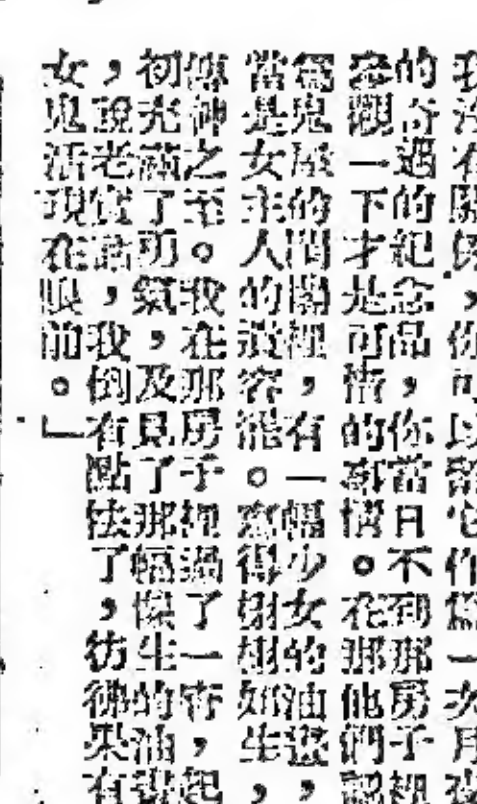 我沒有關係，你可以
的奇遇的紀念品，你當日不到那房子裡
參觀一下才是可惜的事情。在那他們認
爲鬼屋的閣裡，有一幅少女的油畫，
當是女主人的遺容罷。寫得栩栩如生，
傳神之至。我在那房子裡過了一宵，起
初充滿了勇氣，及見了那幅傑生的油畫
，說老實話，我倒有點怯了，彷彿果有
女鬼活現在眼前。」